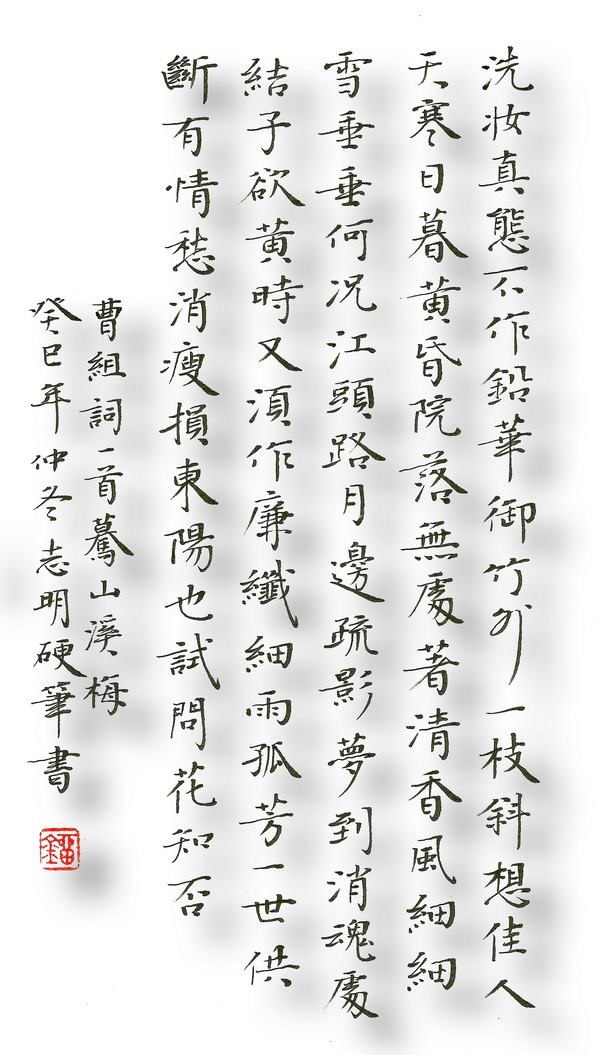 洗妝真態不作鉛華御竹外一枝斜想佳人
天寒日暮黃昏院落無處著清香風細細
雪垂垂何况江頭路月邊疏影夢到消魂處
結子欲黃時又須作廉纖細雨孤芳一世供
斷有情愁消瘦損東陽也試問花知否
曹組詞一首驀山溪梅
癸巳年仲冬志明硬筆書